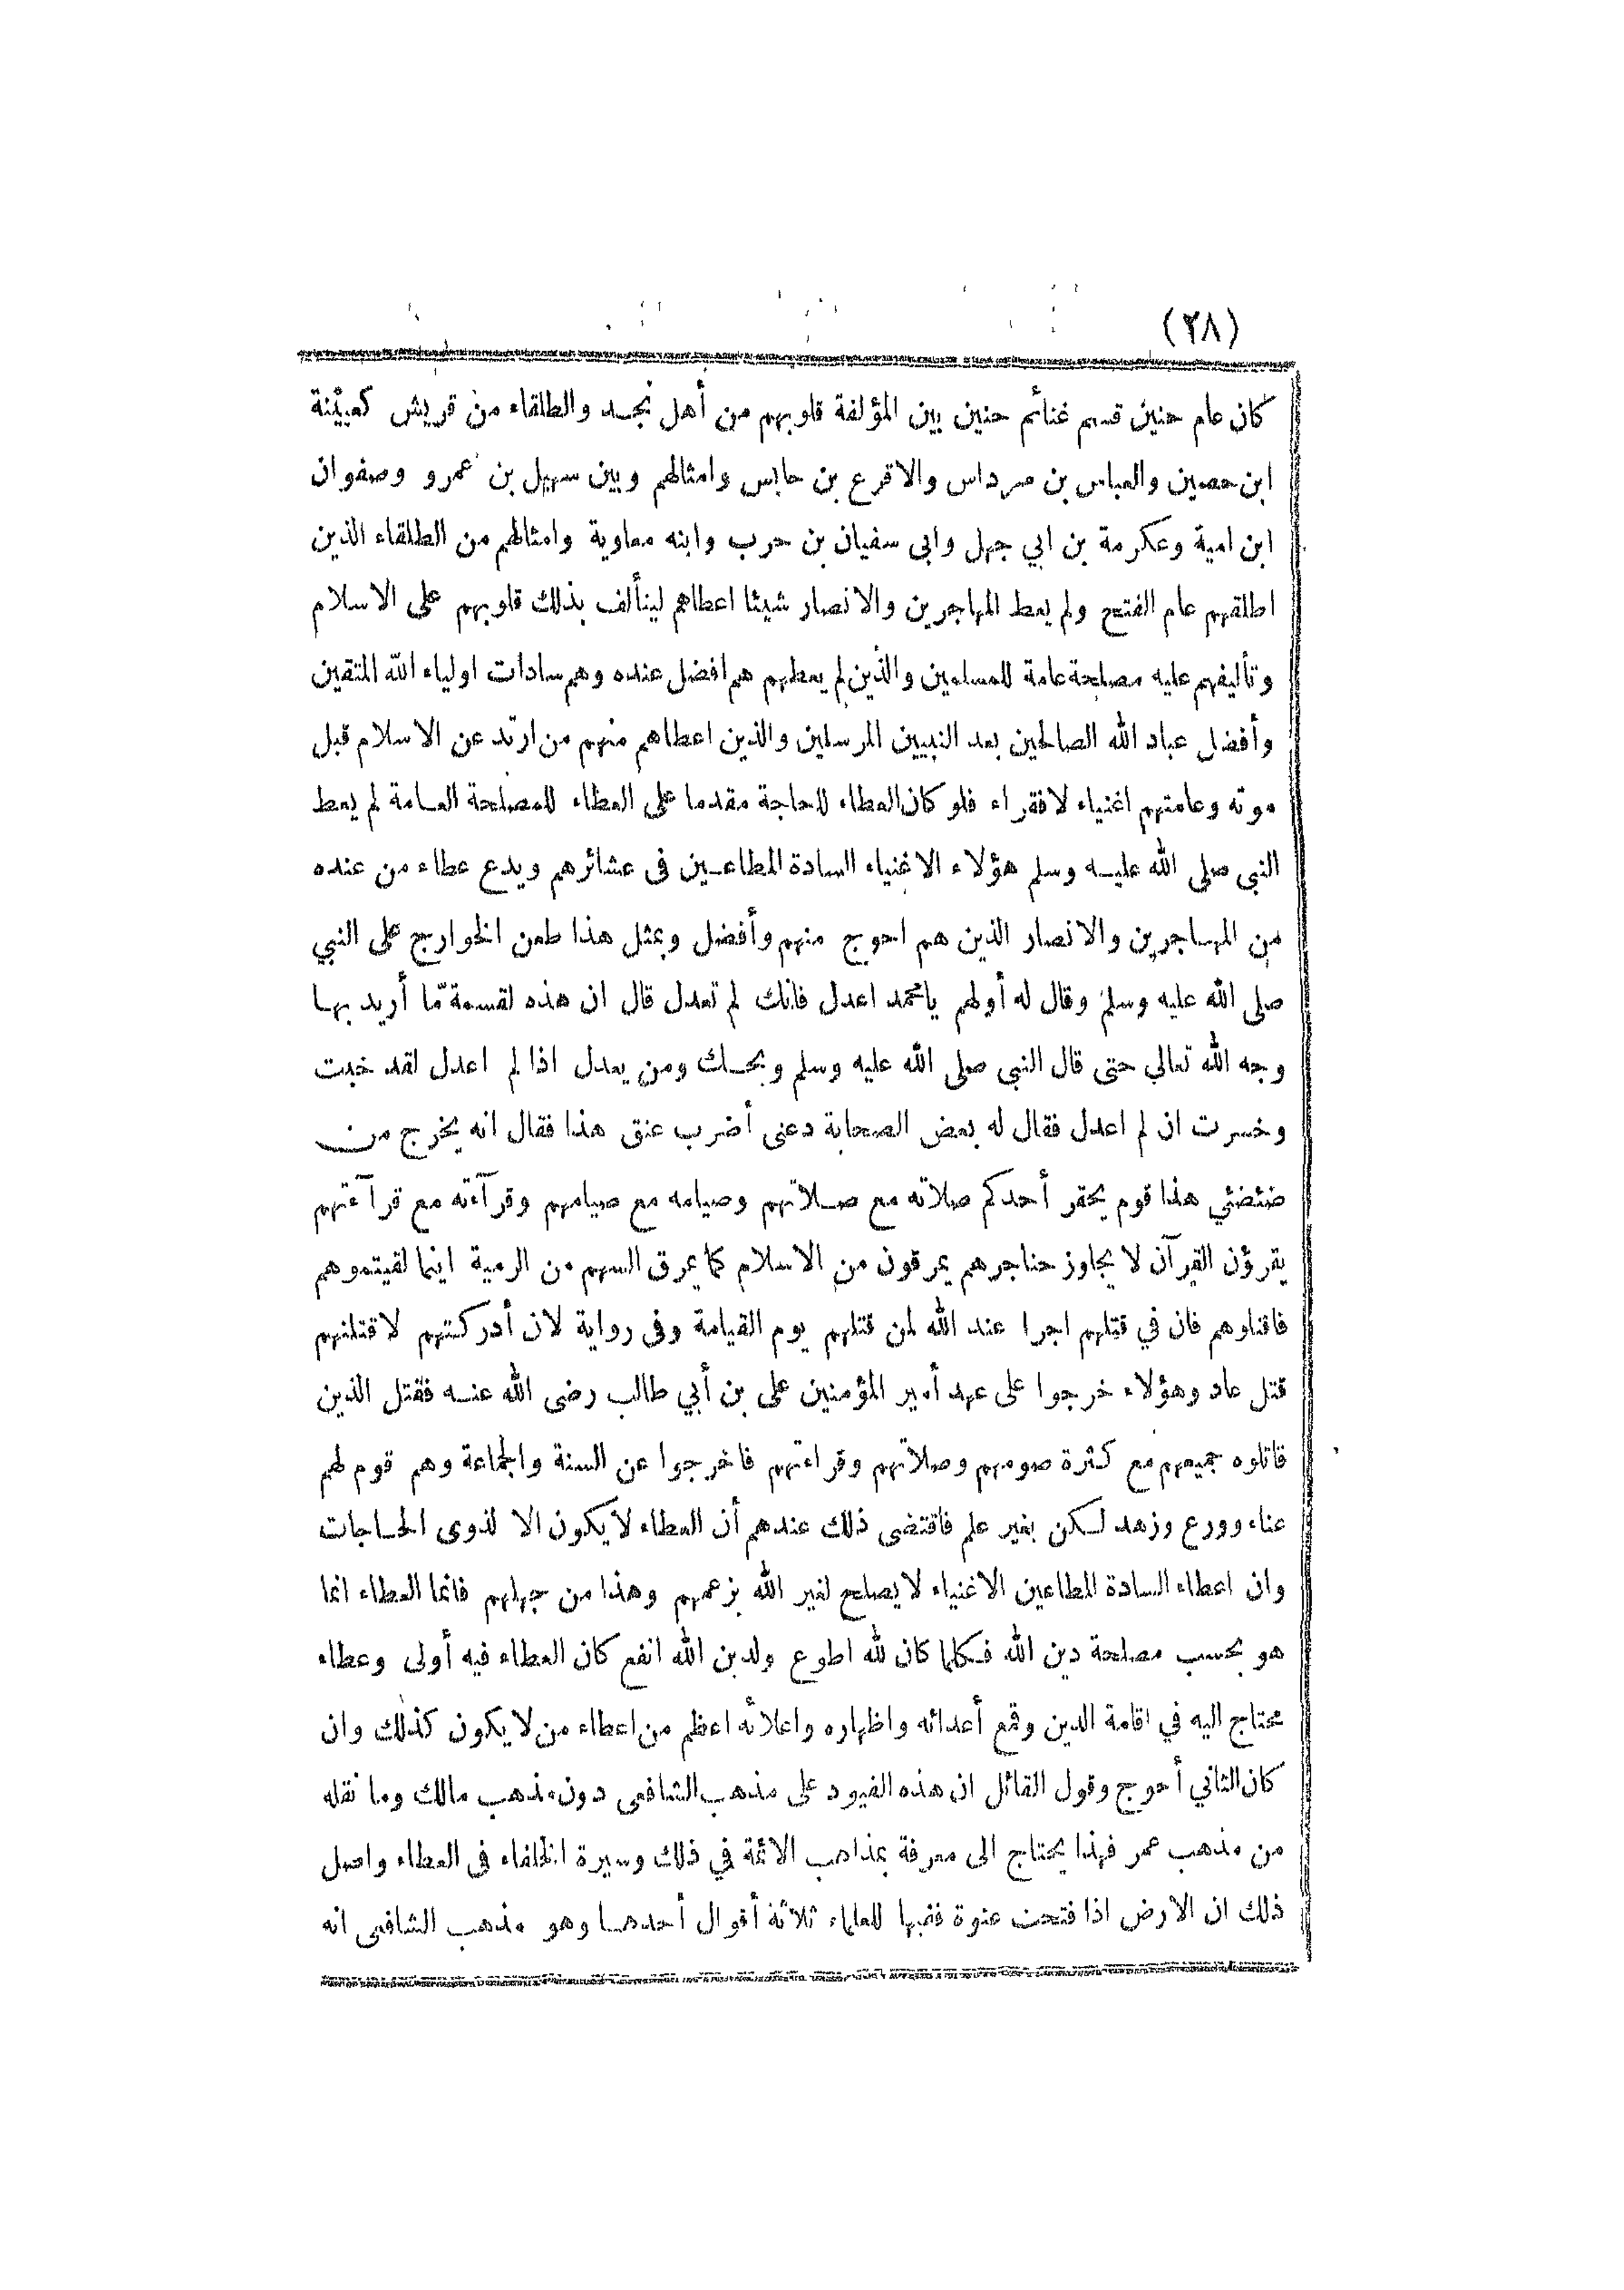 (٢٨)
كان عام حنين قسم غنائم حنين بين المؤلفة قلوبهم من أهل نجد والطلقاء من قريش كعيينة
ابن حصين والعباس بن مرداس والاقرع بن حابس وامثالهم وبين سهيل بن عمرو وصفوان
ابن امية وعكرمة بن ابي جهل وابى سفيان بن حرب وابنه معاوية وامثالهم من الطلقاء الذين
اطلقهم عام الفتح ولم يعط المهاجرين والانصار شيئا اعطاهم ليتألف بذلك قلوبهم على الاسلام
وتأليفهم عليه مصلحة عامة للمسلمين والذين لم يعطهم هم افضل عنده وهم سادات اولياء الله المتقين
وأفضل عباد الله الصالحين بعد النبيين المرسلين والذين اعطاهم منهم من ارتد عن الاسلام قبل
موته وعامتهم اغنياء لا فقراء فلو كان العطاء للحاجة مقدما على العطاء للمصلحة العامة لم يعط
النبى صلى الله عليه وسلم هؤلاء الاغنياء السادة المطاعين فى عشائرهم ويدع عطاء من عنده
من المهاجرين والانصار الذين هم احوج منهم وأفضل وبمثل هذا طعن الخوارج على النبي
صلى الله عليه وسلم وقال له أولهم يا محمد اعدل فانك لم تعدل قال ان هذه لقسمة ما أريد بها
وجه الله تعالي حتى قال النبى صلى الله عليه وسلم ويحك ومن يعدل اذا لم اعدل لقد خبت
وخسرت ان لم اعدل فقال له بعض الصحابة دعنى أضرب عنق هذا فقال انه يخرج من
ضئضئي هذا قوم يحقر أحدكم صلاته مع صلاتهم وصيامه مع صيامهم وقرآءته مع قرآءتهم
يقرؤن القرآن لا يجاوز حناجرهم يمرقون من الاسلام كما يمرق السهم من الرمية اينما لقيتموهم
فاقتلوهم فان في قتلهم اجرا عند الله لمن قتلهم يوم القيامة وفى رواية لان أدركتهم لاقتلنهم
قتل عاد وهؤلاء خرجوا على عهد أمير المؤمنين على بن أبي طالب رضى الله عنه فقتل الذين
قاتلوه جميعهم مع كثرة صومهم وصلاتهم وقراءتهم فاخرجوا عن السنة والجماعة وهم قوم لهم
عناء وورع وزهد لكن بغير علم فاقتضى ذلك عندهم أن العطاء لا يكون الا لذوى الحاجات
وان اعطاء السادة المطاعين الاغنياء لا يصلح لغير الله بزعمهم وهذا من جهلهم فانما العطاء انما
هو بحسب مصلحة دين الله فكلما كان لله اطوع ولدين الله انفع كان العطاء فيه أولى وعطاء
محتاج اليه في اقامة الدين وقمع أعدائه واظهاره واعلائه اعظم من اعطاء من لا يكون كذلك وان
كان الثاني أحوج وقول القائل ان هذه القيود على مذهب الشافعى دون مذهب مالك وما نقله
من مذهب عمر فهذا يحتاج الى معرفة بمذاهب الائمة في ذلك وسيرة الخلفاء فى العطاء واصل
ذلك ان الارض اذا فتحت عنوة ففيها للعلماء ثلاثة أقوال أحدها وهو مذهب الشافعى انه